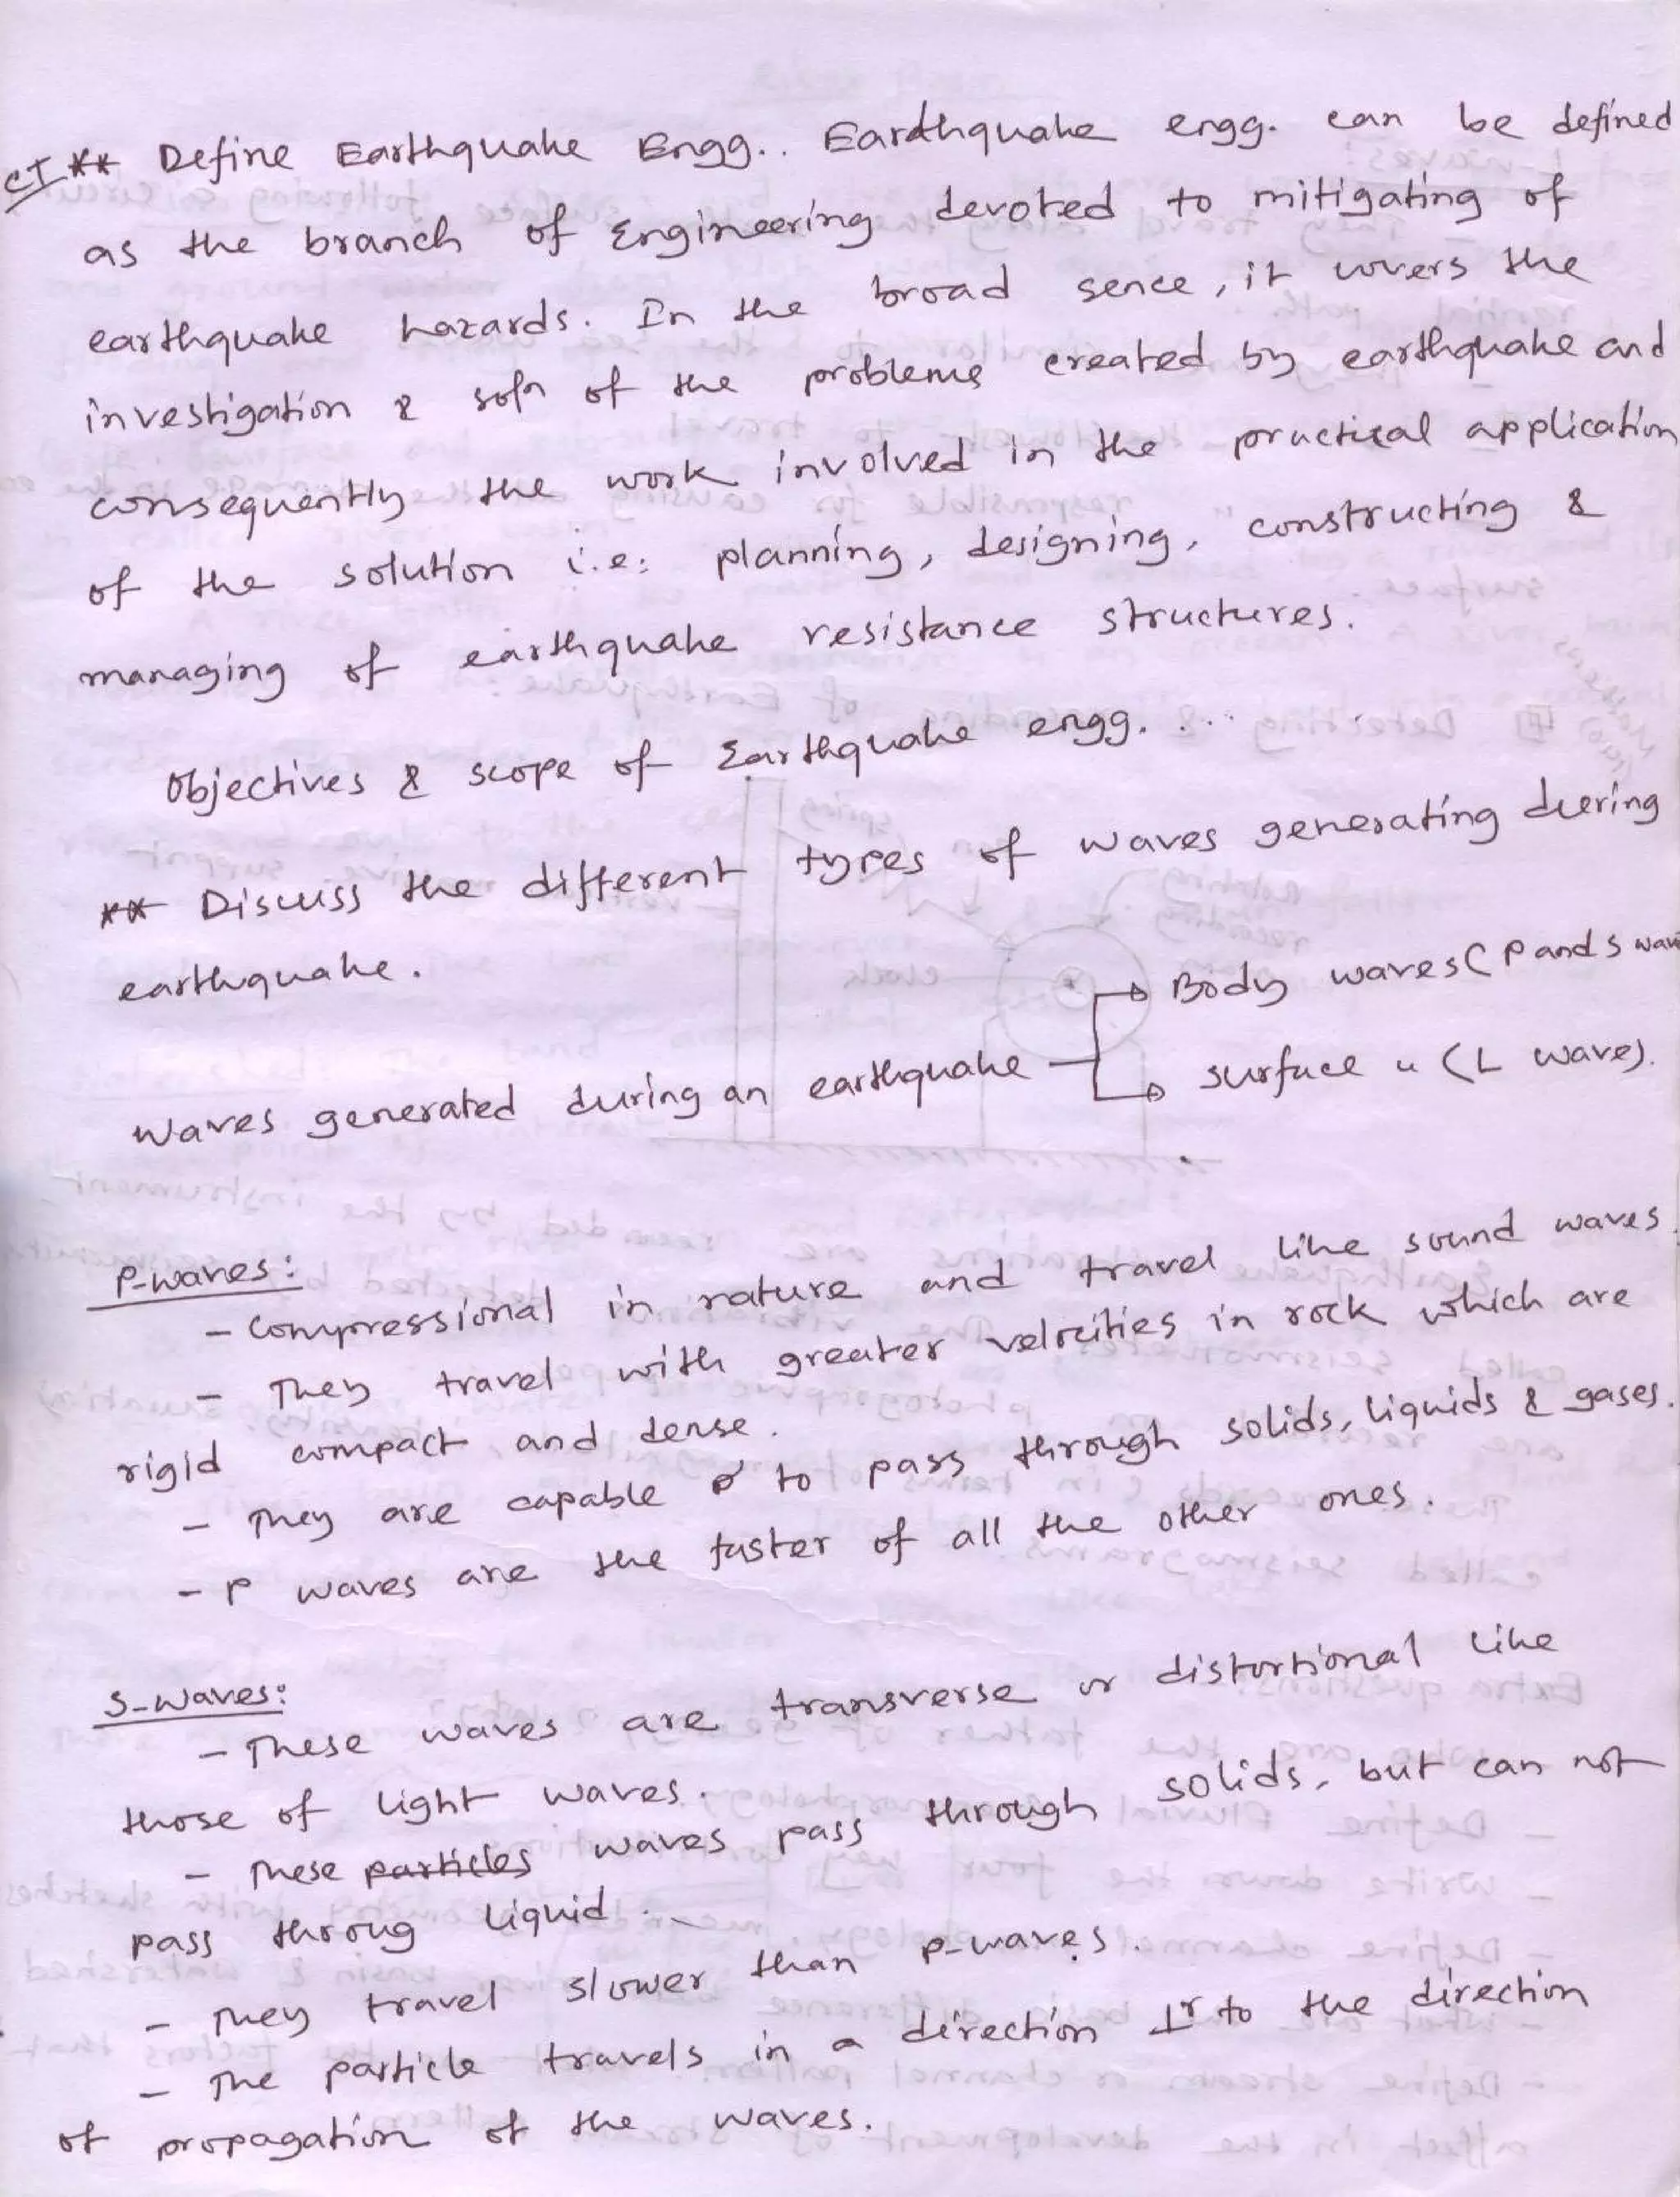 CT ** Define Earthquake Engg.. Eardthquake engg. can be defined
as the branch of Engineering devoted to mitigating of
earthquake hazards. In the broad sence, it covers the
investigation & soln of the problems created by earthquake and
consequently the work involved in the practical application
of the solution i.e: planning, designing, constructing &
managing of earthquake resistance structures.
Objectives & scope of Earthquake engg. ...
** Discuss the different types of waves generating during
earthquake.
Body waves (P and S wav
Waves generated during an earthquake
surface " (L wave).
P-waves:
- Compressional in nature and travel like sound waves.
- They travel with greater velocities in rock which are
rigid compact and dense.
- They are capable to pass through solids, liquids & gases.
- P waves are the faster of all the other ones.
S-waves:
- These waves are transverse or distortional like
those of light waves.
- These particles waves pass through solids, but can not
pass throug liquid.
- They travel slower than p-waves.
- The particle travels in a direction ⊥r to the direction
of propagation of the waves.